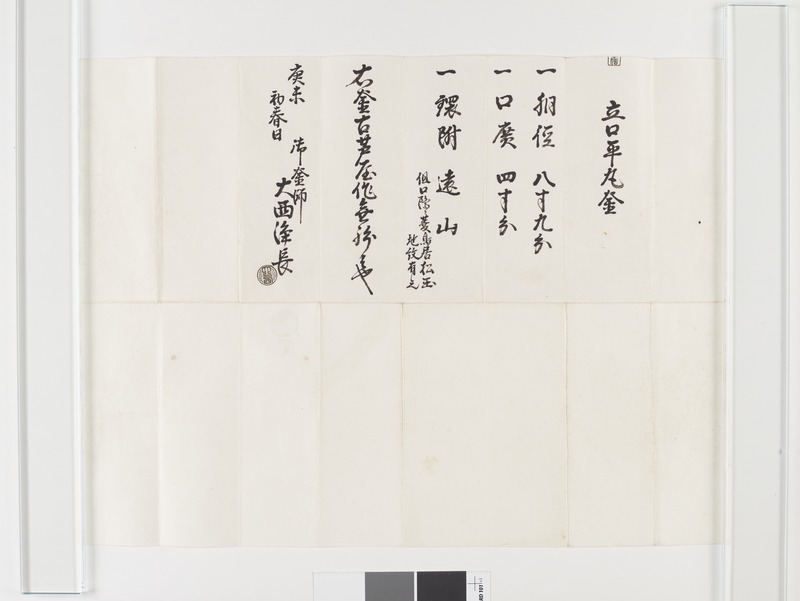 立口平丸釜
一 胴径 八寸九分
一 口廣 四寸分
一 鐶附 遠山
但口際菱鳥居松
地紋有之
右釜古芦屋作無紛
庚未
初春日
御釜師
大西浄長